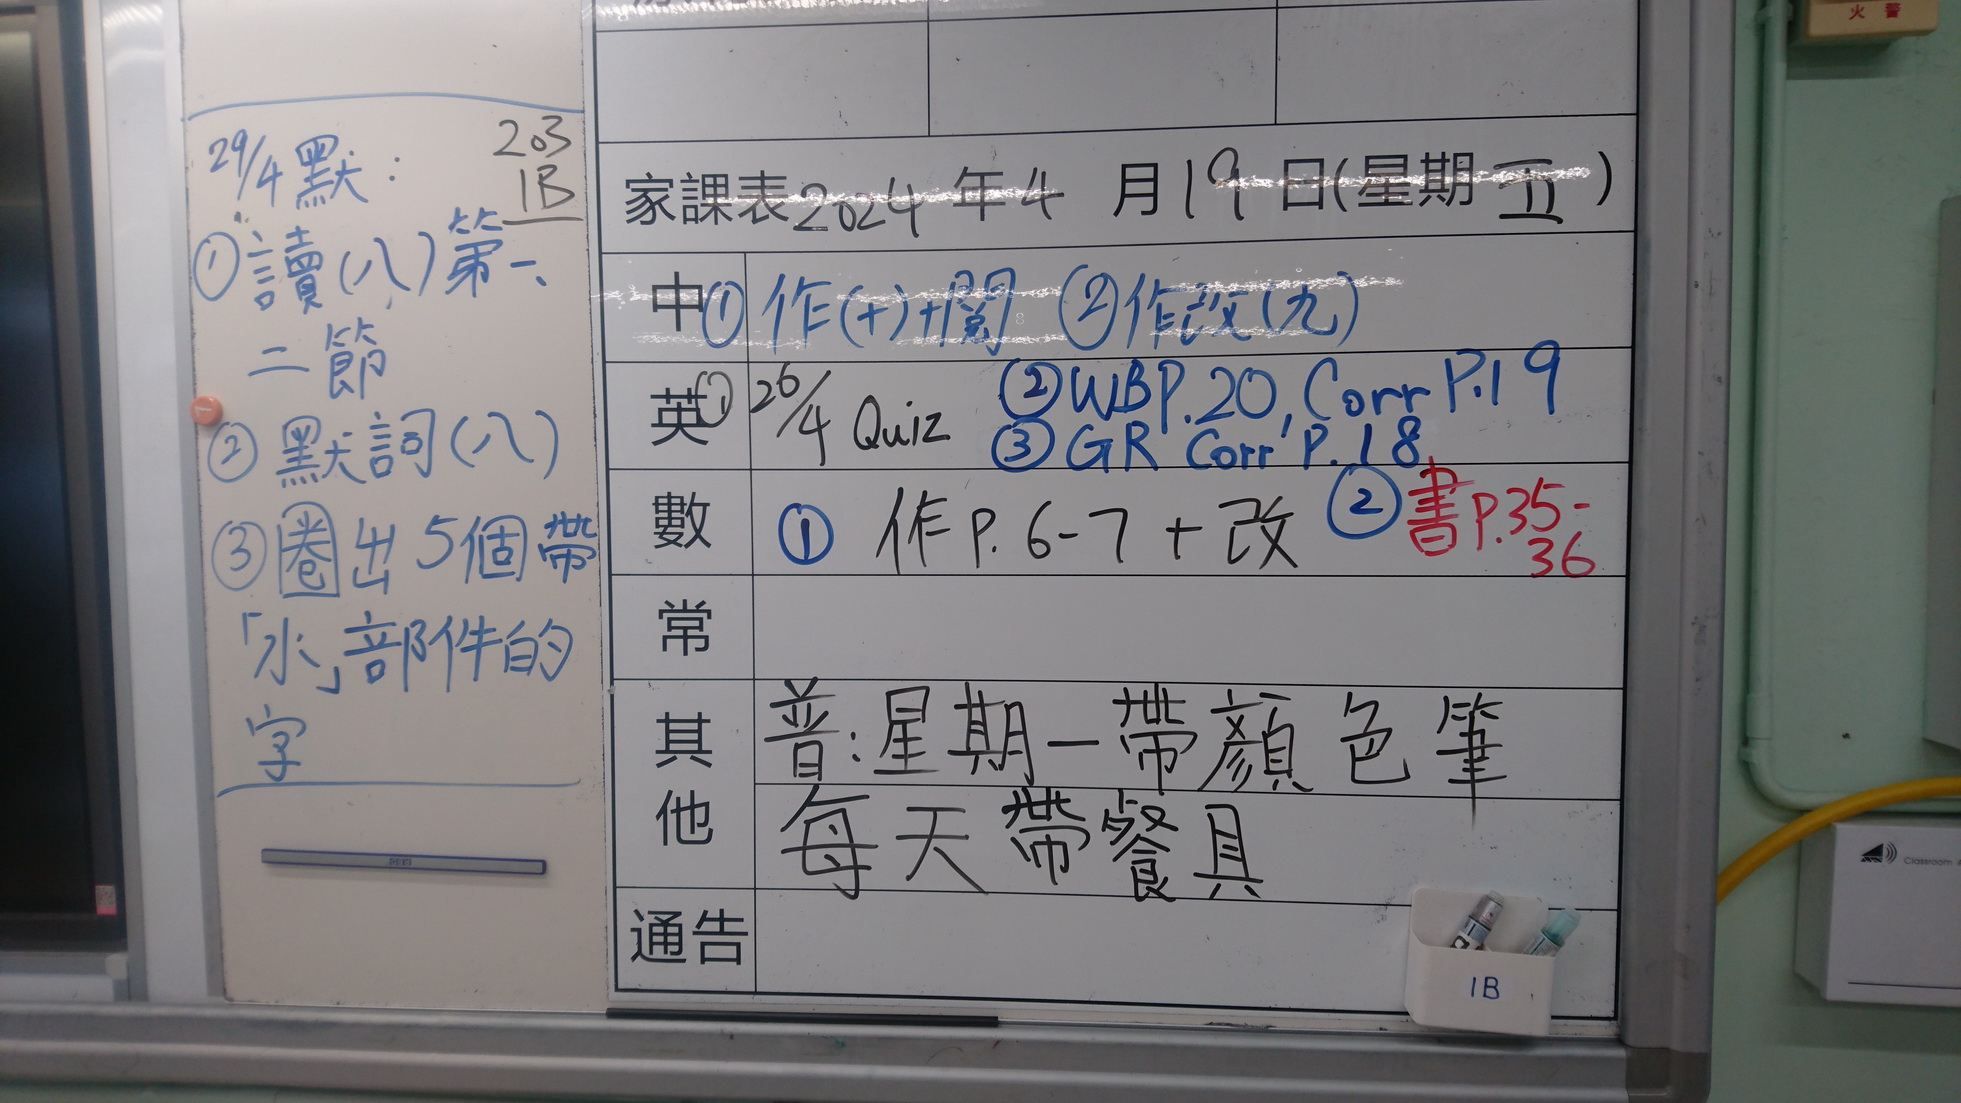 火警
203
1B
29/4 默：
① 讀(八)第一、
二節
② 默詞(八)
③ 圈出5個帶
「水」部件的
字
家課表2024年4月19日(星期五)
中 ① 作(十)+閱 ②作改(九)
英 ① 26/4 Quiz ② WB P.20, Corr P.19
③ GR Corr P.18
數 ① 作 P. 6-7 + 改 ② 書 P.35-
36
常
其他
普：星期一帶顏色筆
每天帶餐具
通告
1B
Classroom